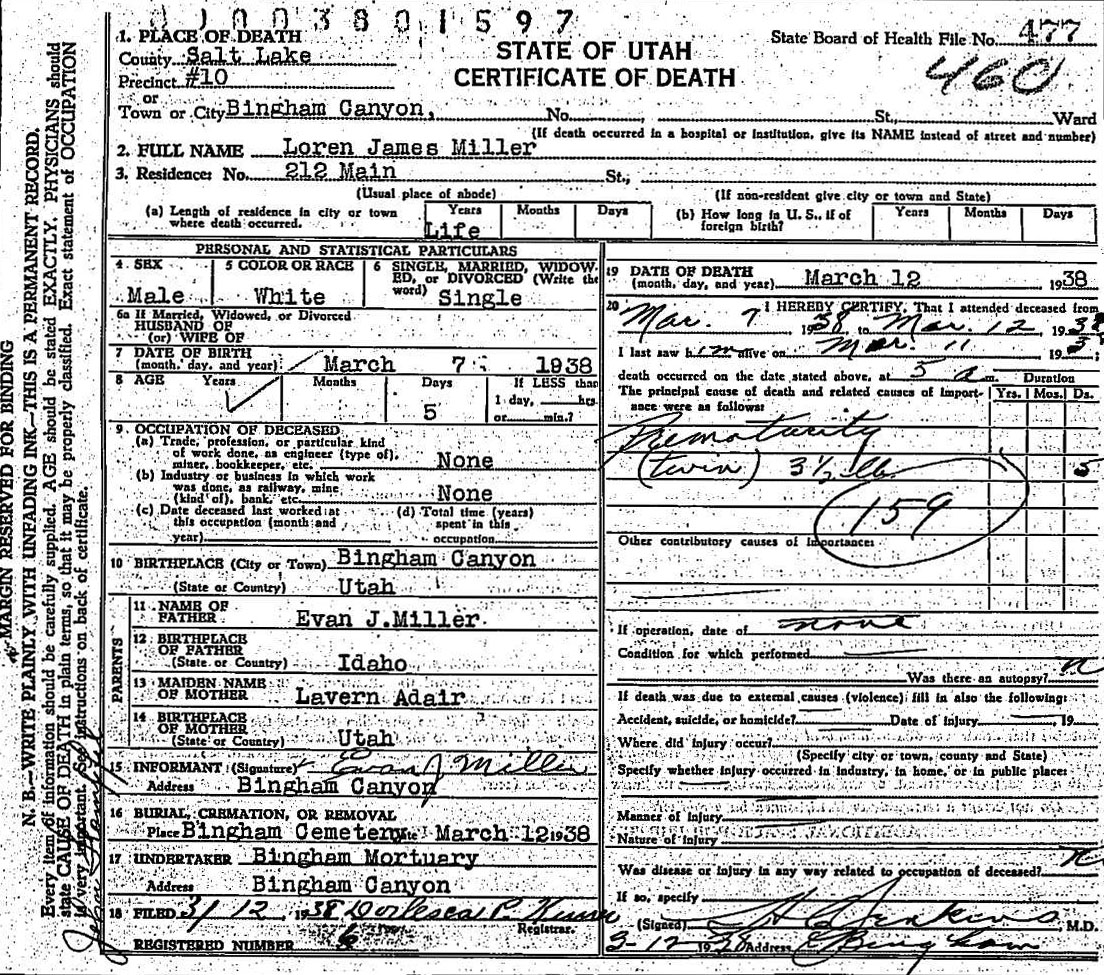 003801597
1. PLACE OF DEATH
County Salt Lake
Precinct #10
or
Town or City Bingham Canyon, No. St., Ward
(If death occurred in a hospital or institution, give its NAME instead of street and number)
STATE OF UTAH
CERTIFICATE OF DEATH
State Board of Health File No. 477
460
2. FULL NAME Loren James Miller
3. Residence: No. 212 Main St.,
(Usual place of abode) (If non-resident give city or town and State)
(a) Length of residence in city or town where death occurred. Years Months Days
Life
(b) How long in U. S., if of foreign birth? Years Months Days
PERSONAL AND STATISTICAL PARTICULARS
4 SEX
Male
5 COLOR OR RACE
White
6 SINGLE, MARRIED, WIDOWED, or DIVORCED (Write the word)
Single
6a If Married, Widowed, or Divorced
HUSBAND OF
(or) WIFE OF
7 DATE OF BIRTH
(month, day, and year) March 7 1938
8 AGE Years Months Days If LESS than
1 day, hrs.
5 or min.?
9 OCCUPATION OF DECEASED
(a) Trade, profession, or particular kind
of work done, as engineer (type of),
miner, bookkeeper, etc. None
(b) Industry or business in which work
was done, as railway, mine
(kind of), bank, etc. None
(c) Date deceased last worked at
this occupation (month and
year)
(d) Total time (years)
spent in this
occupation
10 BIRTHPLACE (City or Town) Bingham Canyon
(State or Country) Utah
PARENTS
11 NAME OF
FATHER Evan J.Miller
12 BIRTHPLACE
OF FATHER
(State or Country) Idaho
13 MAIDEN NAME
OF MOTHER Lavern Adair
14 BIRTHPLACE
OF MOTHER
(State or Country) Utah
15 INFORMANT (Signature) Evan J Miller
Address Bingham Canyon
16 BURIAL, CREMATION, OR REMOVAL
Place Bingham Cemetery Date March 12 1938
17 UNDERTAKER Bingham Mortuary
Address Bingham Canyon
18 FILED 3/12, 1938
Registrar.
REGISTERED NUMBER 6
19 DATE OF DEATH
(month, day, and year) March 12 1938
20 I HEREBY CERTIFY, That I attended deceased from
Mar. 7 1938 to Mar. 12 1938
I last saw him alive on Mar. 11 193 ;
death occurred on the date stated above, at 5 a m. Duration
The principal cause of death and related causes of importance were as follows: Yrs. Mos. Ds.
Prematurity
(twin) 3½ lbs. 5
159
Other contributory causes of importance:
If operation, date of none
Condition for which performed
Was there an autopsy? n
If death was due to external causes (violence) fill in also the following:
Accident, suicide, or homicide? Date of injury , 19
Where did injury occur?
(Specify city or town, county and State)
Specify whether injury occurred in industry, in home, or in public place:
Manner of injury
Nature of injury
Was disease or injury in any way related to occupation of deceased?
If so, specify
(Signed) Jenkins, M.D.
3-12 1938 Address Bingham
MARGIN RESERVED FOR BINDING
N. B.—WRITE PLAINLY, WITH UNFADING INK—THIS IS A PERMANENT RECORD.
Every item of information should be carefully supplied. AGE should be stated EXACTLY. PHYSICIANS should
state CAUSE OF DEATH in plain terms, so that it may be properly classified. Exact statement of OCCUPATION
is very important. See instructions on back of certificate.